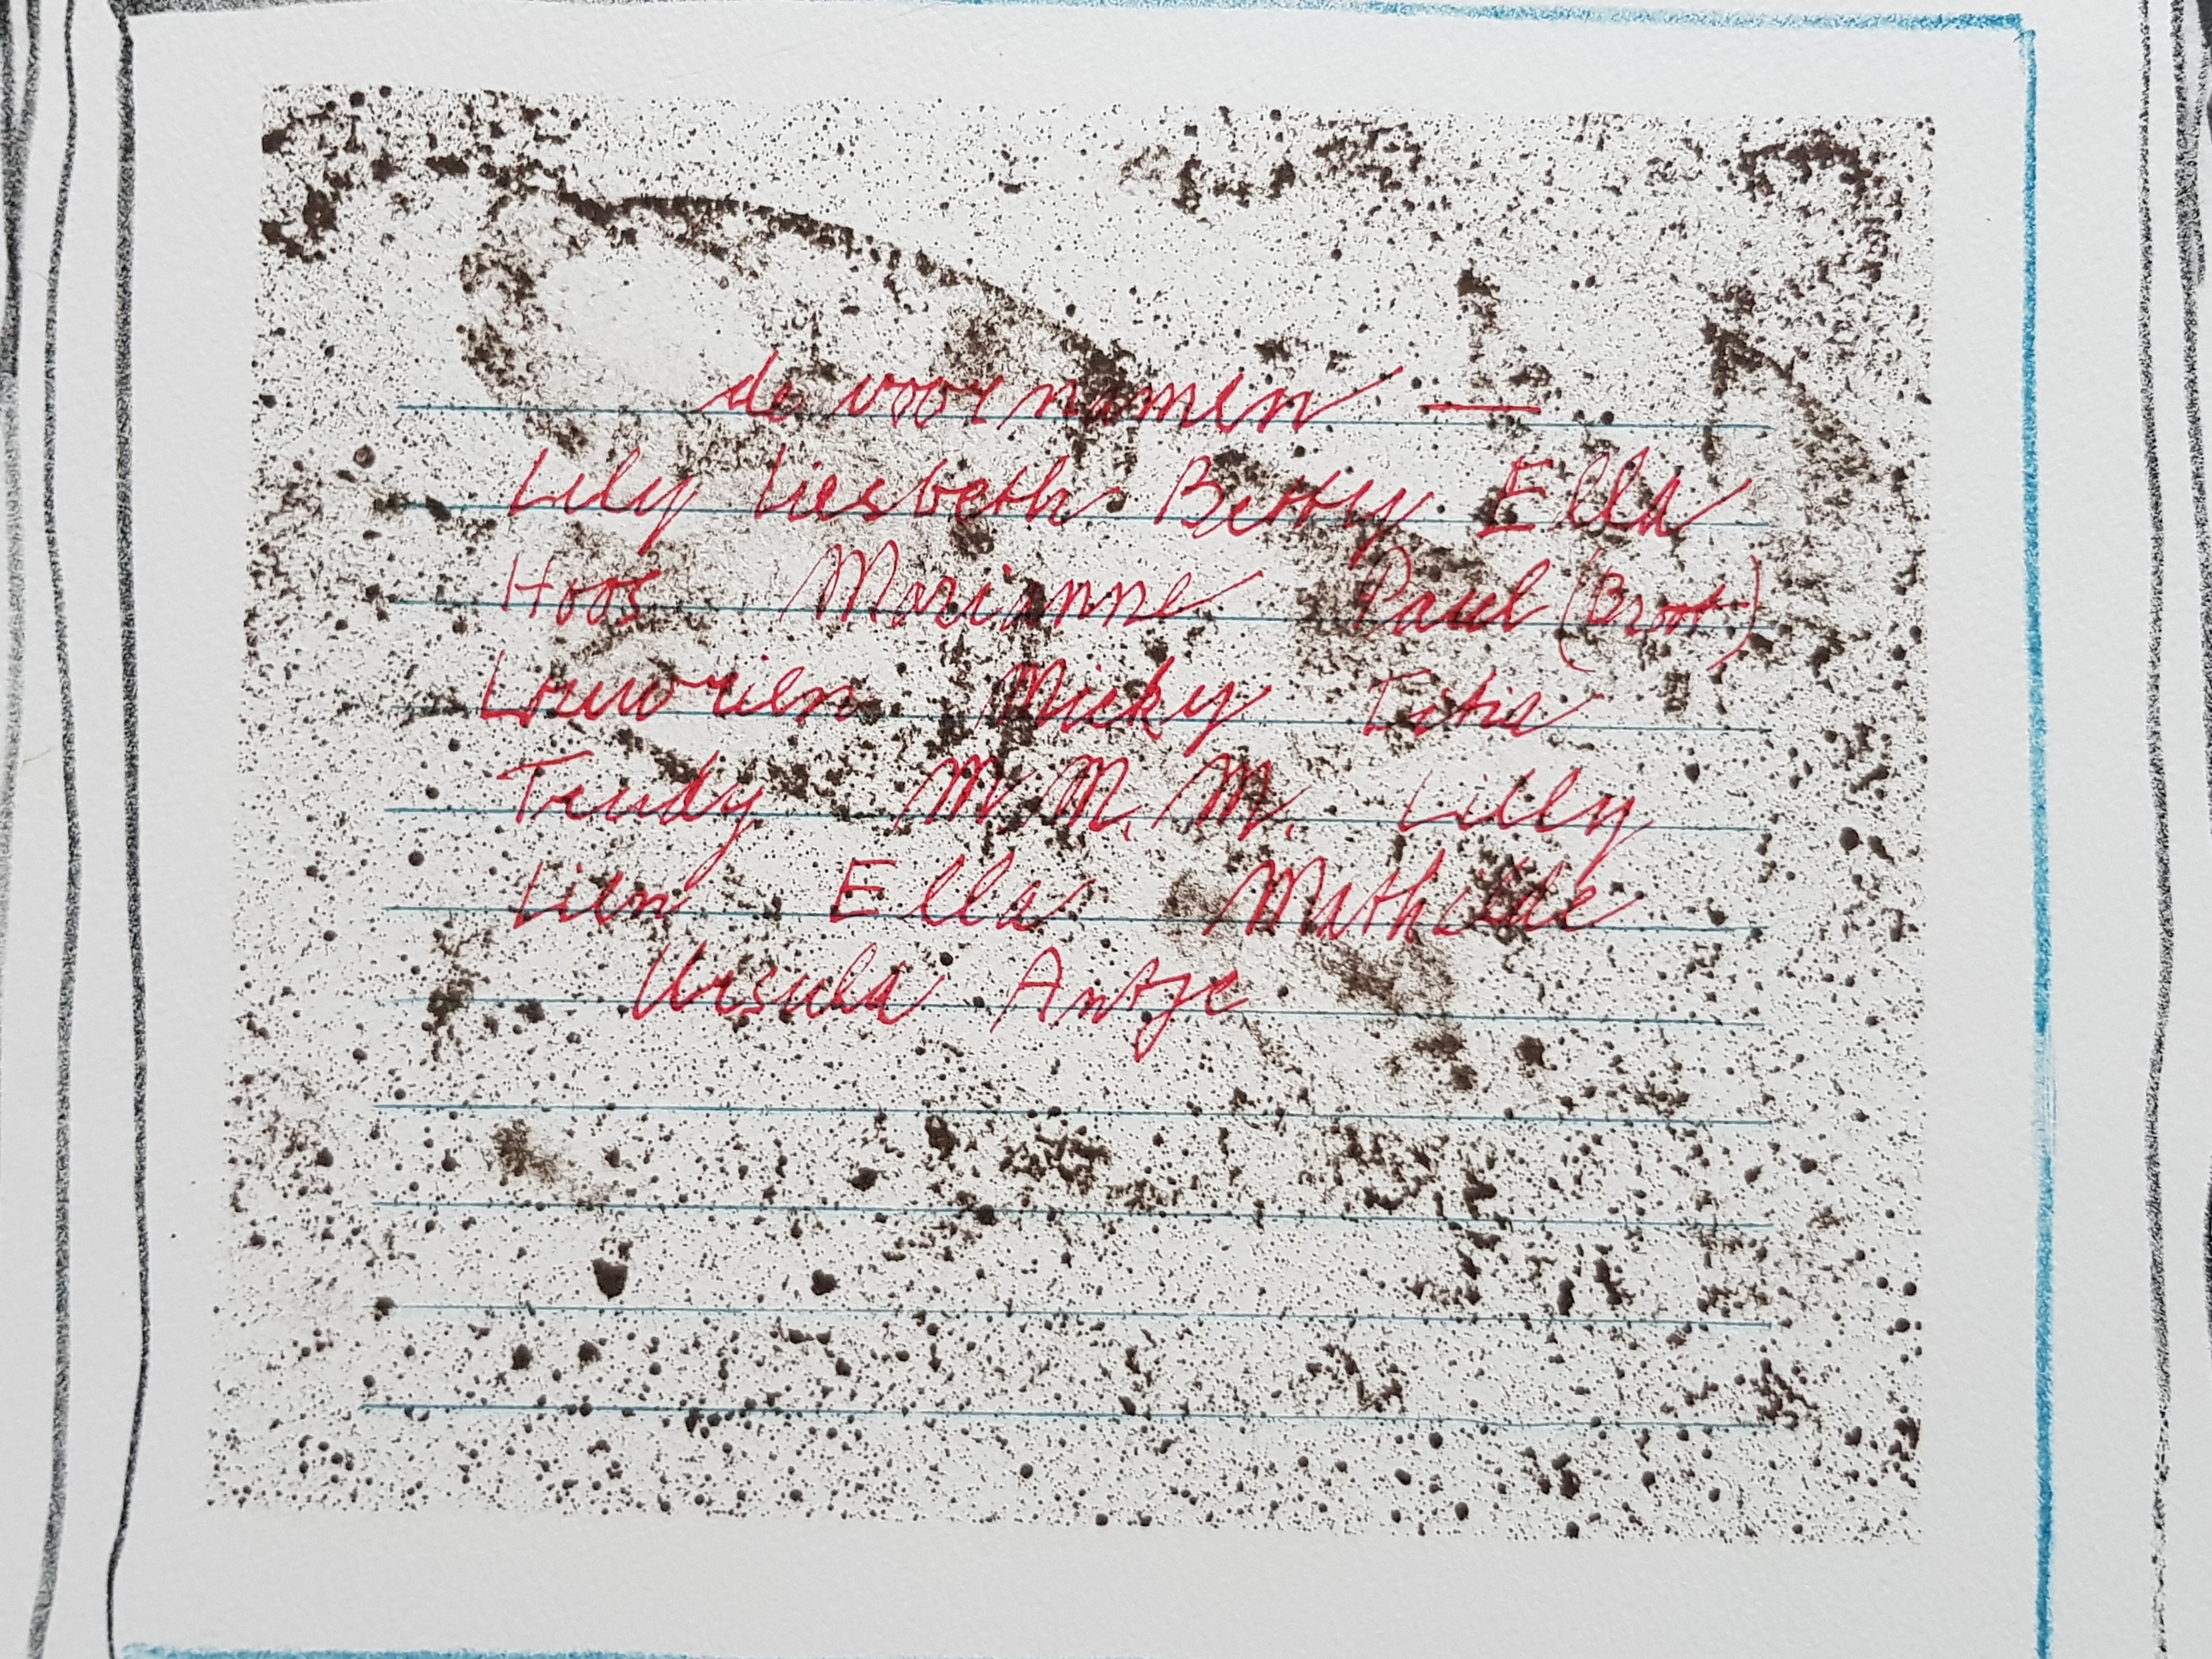 de voornamen —
Lily Liesbeth Betty Ella
Hoos Marianne Paul (Broot)
Louwrien Micky Titia
Trudy M. M. M. Lilly
Lien Ella Mathilde
Ursula Antje